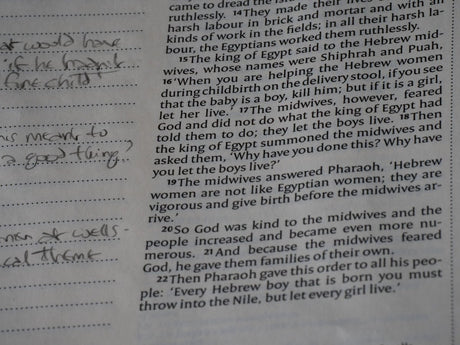 came to dread the
ruthlessly. 14 They made their lives
harsh labour in brick and mortar and with all
kinds of work in the fields; in all their harsh la-
bour, the Egyptians worked them ruthlessly.
15 The king of Egypt said to the Hebrew mid-
wives, whose names were Shiphrah and Puah,
16 'When you are helping the Hebrew women
during childbirth on the delivery stool, if you see
that the baby is a boy, kill him; but if it is a girl,
let her live.' 17 The midwives, however, feared
God and did not do what the king of Egypt had
told them to do; they let the boys live. 18 Then
the king of Egypt summoned the midwives and
asked them, 'Why have you done this? Why have
you let the boys live?'
19 The midwives answered Pharaoh, 'Hebrew
women are not like Egyptian women; they are
vigorous and give birth before the midwives ar-
rive.'
20 So God was kind to the midwives and the
people increased and became even more nu-
merous. 21 And because the midwives feared
God, he gave them families of their own.
22 Then Pharaoh gave this order to all his peo-
ple: 'Every Hebrew boy that is born you must
throw into the Nile, but let every girl live.'
would have
if he
child!
meant to
a good thing?
at wells -
theme